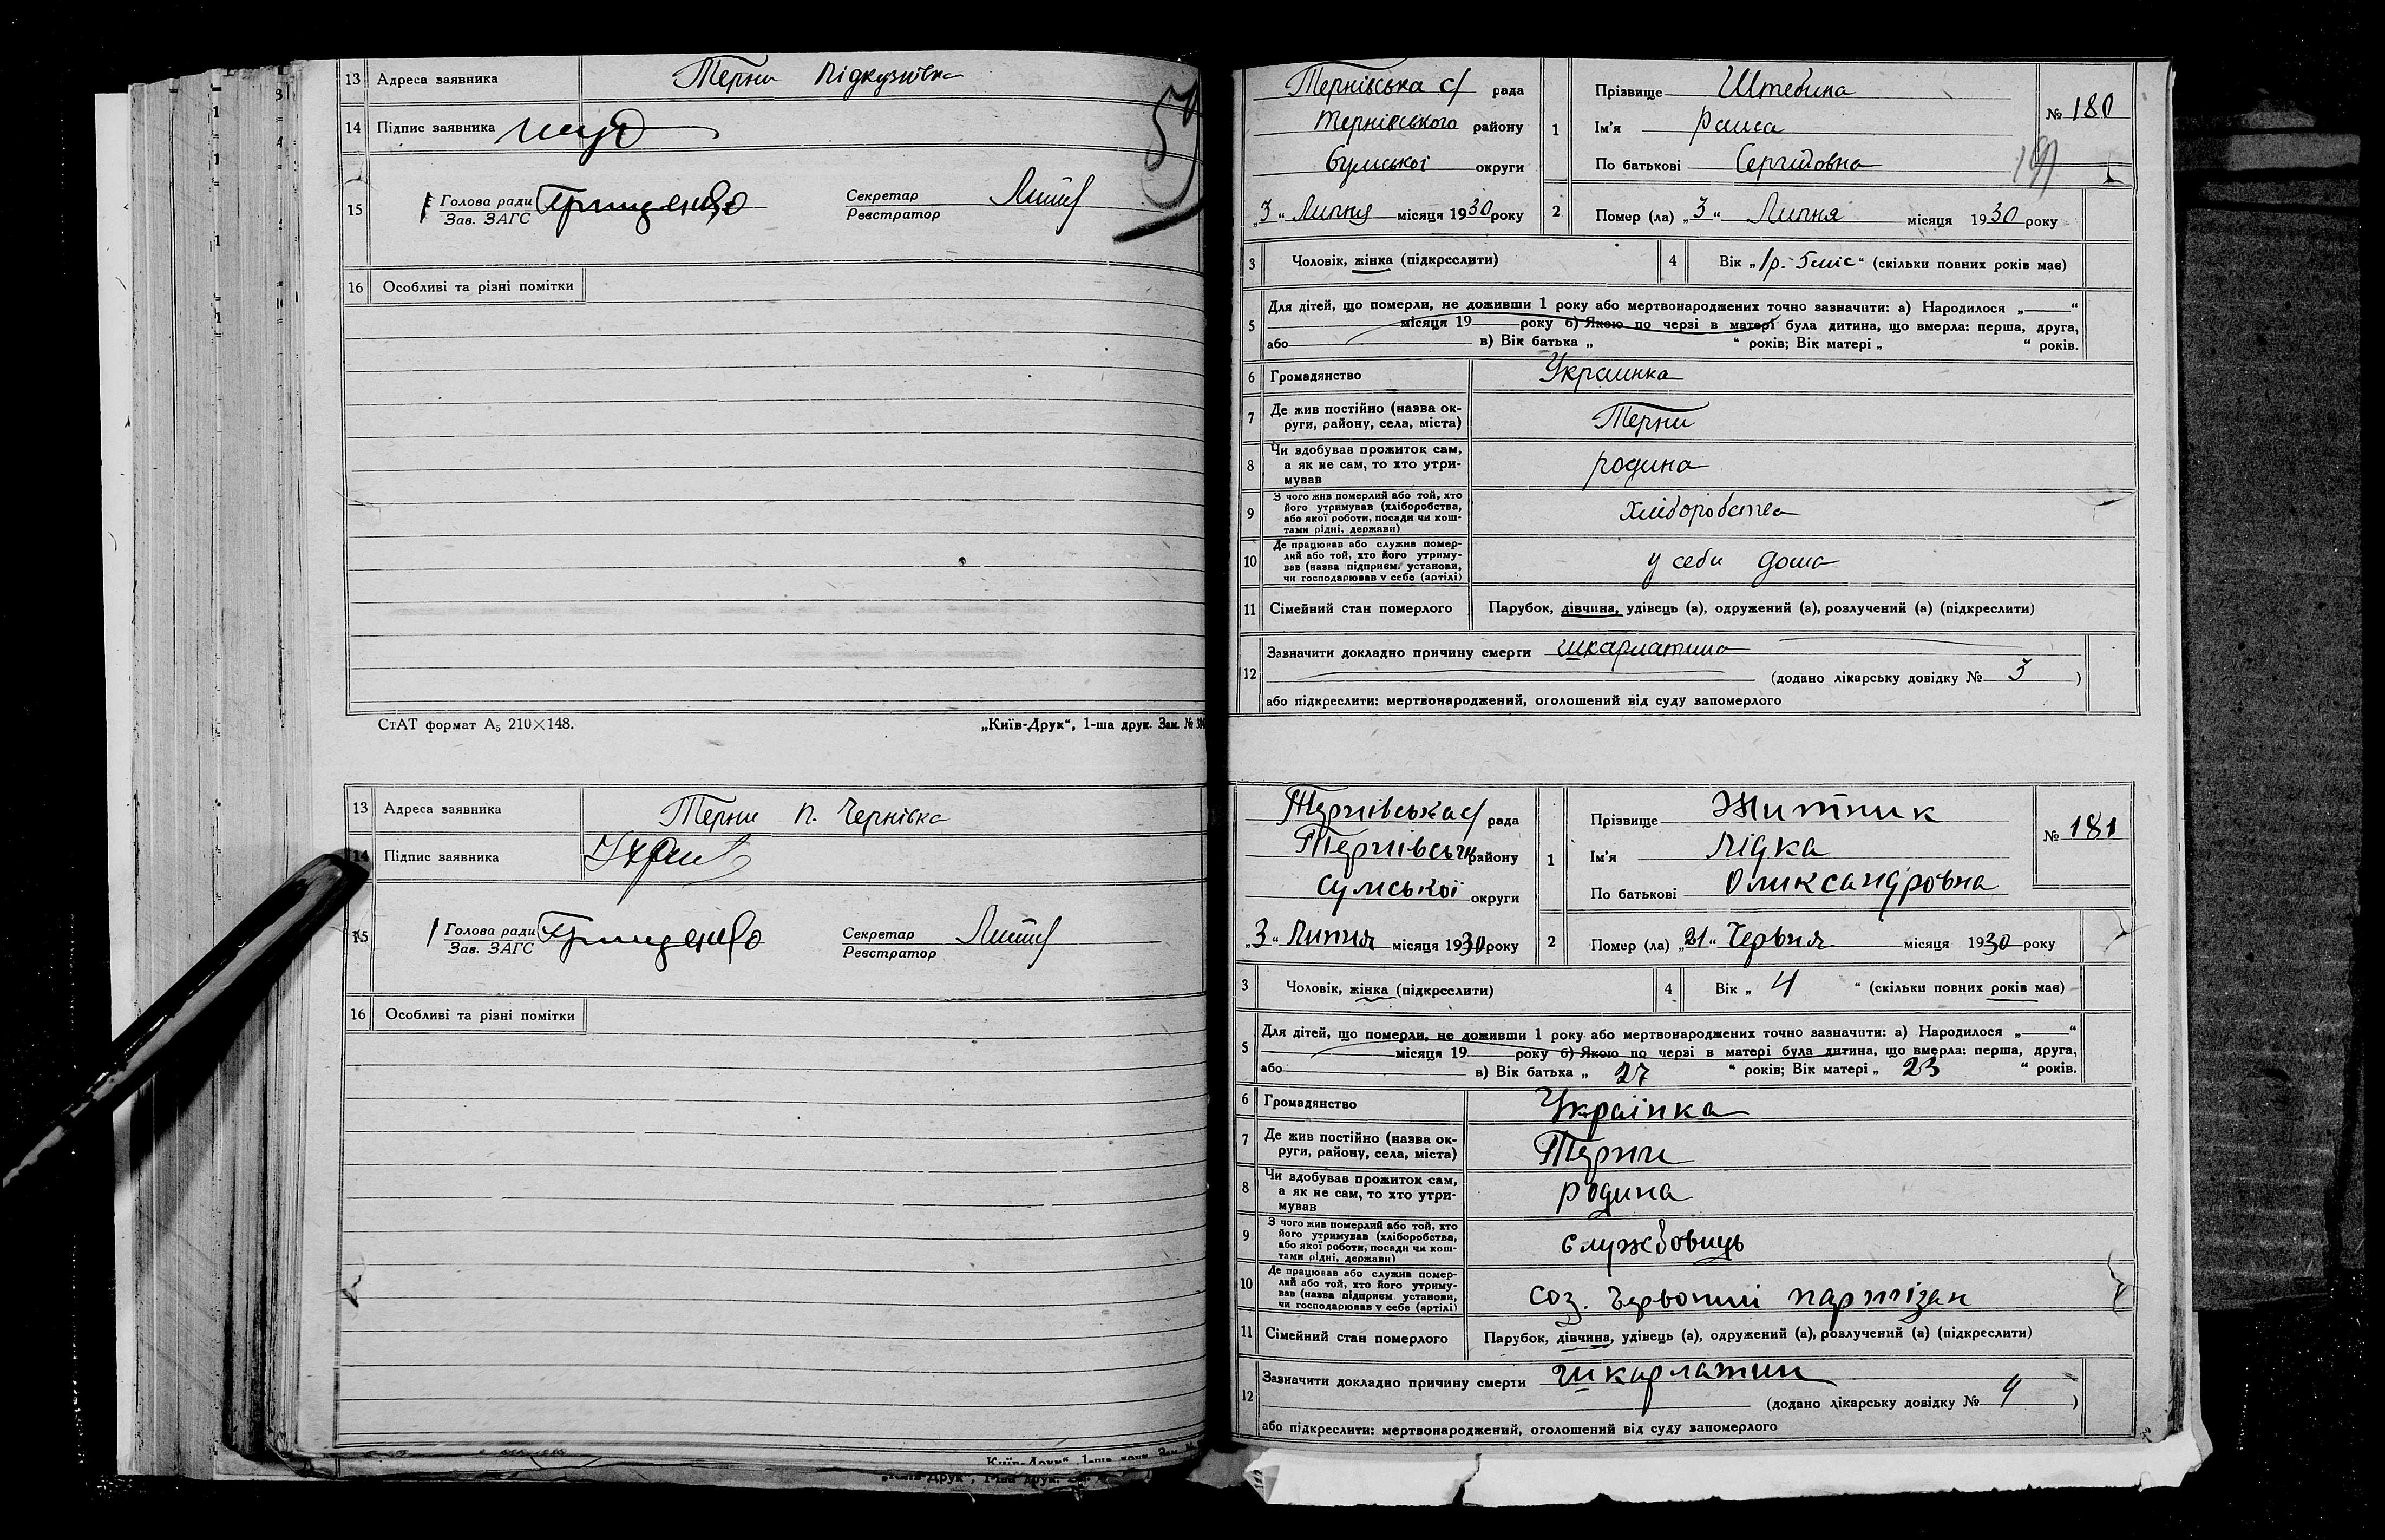 13 Адреса заявника Терни Підкузнівка
14 Підпис заявника
15 Голова ради Грищенко Секретар
Зав. ЗАГС Реєстратор
16 Особливі та різні помітки
СтАТ формат А5 210×148. „Київ-Друк“, 1-ша друк. Зам. №
13 Адреса заявника Терни п. Чернівка
14 Підпис заявника
15 Голова ради Грищенко Секретар
Зав. ЗАГС Реєстратор
16 Особливі та різні помітки
Київ-Друк“, 1-ша друк.
„Київ-Друк“, 1-ша друк.
59
Тернівська с/ рада
Тернівського району
Сумської округи
„3“ Липня місяця 1930 року
1 Прізвище Штебина
Ім'я раиса
По батькові Сергійовна
№ 180
2 Помер (ла) „3“ Липня місяця 1930 року
3 Чоловік, жінка (підкреслити) 4 Вік „1р. 5міс“ (скільки повних років має)
5 Для дітей, що померли, не доживши 1 року або мертвонароджених точно зазначити: а) Народилося „ “
місяця 19 року б) Якою по черзі в матері була дитина, що вмерла: перша, друга,
або в) Вік батька „ “ років; Вік матері „ “ років.
6 Громадянство Украинка
7 Де жив постійно (назва ок-
руги, району, села, міста) Терни
8 Чи здобував прожиток сам,
а як не сам, то хто утри-
мував родина
9 З чого жив померлий або той, хто
його утримував (хліборобства,
або якої роботи, посади чи кош-
тами рідні, держави) хліборобства
10 Де працював або служив помер-
лий або той, хто його утриму-
вав (назва підприєм. установи,
чи господарював у себе (артілі) у себи дома
11 Сімейний стан померлого Парубок, дівчина, удівець (а), одружений (а), розлучений (а) (підкреслити)
12 Зазначити докладно причину смерти шкарлатина
(додано лікарську довідку № 3 )
або підкреслити: мертвонароджений, оголошений від суду запомерлого
Тернівська с/ рада
району
сумської округи
„3“ Липня місяця 1930 року
1 Прізвище Житник
Ім'я лідка
По батькові Олександровна
№ 181
2 Помер (ла) „21“ Червня місяця 1930 року
3 Чоловік, жінка (підкреслити) 4 Вік „ 4 “ (скільки повних років має)
5 Для дітей, що померли, не доживши 1 року або мертвонароджених точно зазначити: а) Народилося „ “
місяця 19 року б) Якою по черзі в матері була дитина, що вмерла: перша, друга,
або в) Вік батька „ 27 “ років; Вік матері „ 23 “ років.
6 Громадянство Українка
7 Де жив постійно (назва ок-
руги, району, села, міста) Терни
8 Чи здобував прожиток сам,
а як не сам, то хто утри-
мував родина
9 З чого жив померлий або той, хто
його утримував (хліборобства,
або якої роботи, посади чи кош-
тами рідні, держави) службовиць
10 Де працював або служив помер-
лий або той, хто його утриму-
вав (назва підприєм. установи,
чи господарював у себе (артілі) соз. Червоний партізан
11 Сімейний стан померлого Парубок, дівчина, удівець (а), одружений (а), розлучений (а) (підкреслити)
12 Зазначити докладно причину смерти шкарлатини
(додано лікарську довідку № 4 )
або підкреслити: мертвонароджений, оголошений від суду запомерлого